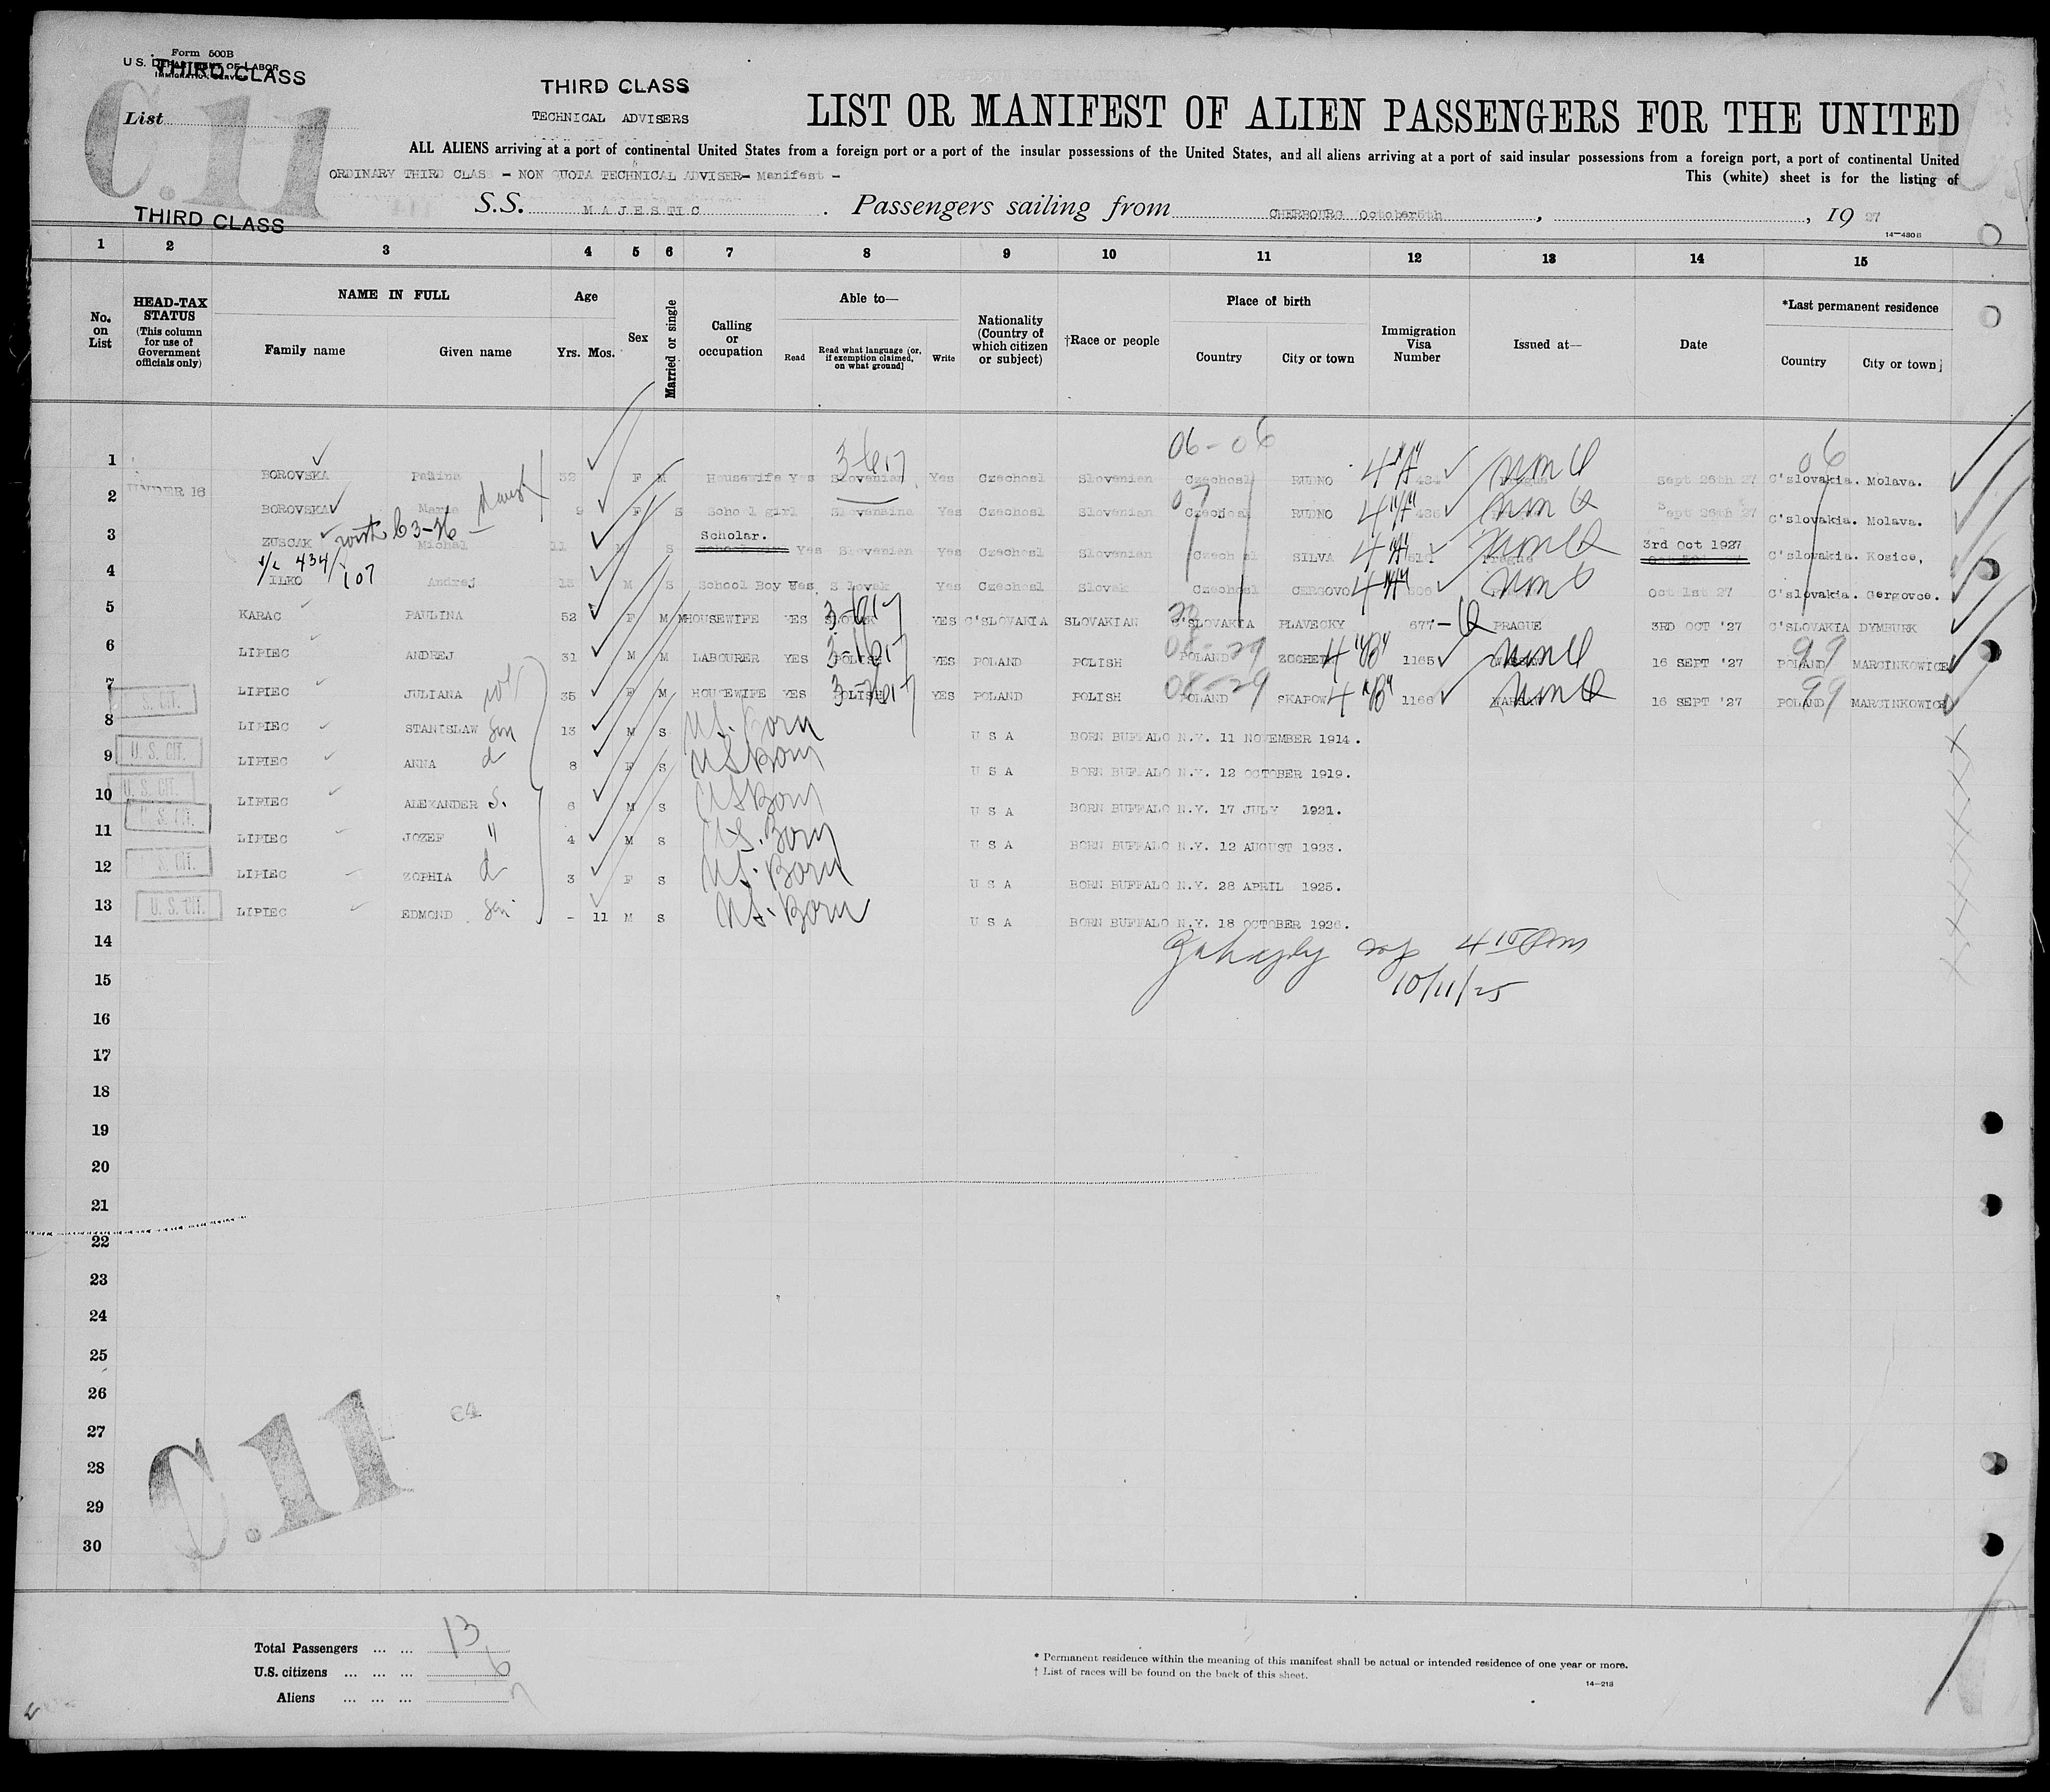 Form 500B
U.S. DEPARTMENT OF LABOR
IMMIGRATION SERVICE
THIRD CLASS
List
C.11
THIRD CLASS
THIRD CLASS
TECHNICAL ADVISERS
LIST OR MANIFEST OF ALIEN PASSENGERS FOR THE UNITED
ALL ALIENS arriving at a port of continental United States from a foreign port or a port of the insular possessions of the United States, and all aliens arriving at a port of said insular possessions from a foreign port, a port of continental United
ORDINARY THIRD CLASS - NON QUOTA TECHNICAL ADVISER- Manifest -
This (white) sheet is for the listing of
S.S. MAJESTIC . Passengers sailing from CHERBOURG October 5th , , 19 27
14-480B
1 2 3 4 5 6 7 8 9 10 11 12 13 14 15
No. on List
HEAD-TAX STATUS (This column for use of Government officials only)
NAME IN FULL
Family name Given name
Age
Yrs. Mos.
Sex
Married or single
Calling or occupation
Able to—
Read
Read what language (or, if exemption claimed, on what ground)
Write
Nationality (Country of which citizen or subject)
†Race or people
Place of birth
Country City or town
Immigration Visa Number
Issued at—
Date
*Last permanent residence
Country City or town
06-06
1 BOROVSKA 32 F M Housewife Yes Slovenian Yes Czechosl Slovenian Czechosl RUDNO 434 Sept 26th 27 C'slovakia. Molava.
2 UNDER 16 BOROVSKA Marie 9 F S School girl Yes Czechosl Slovenian Czechosl RUDNO 435 Sept 26th 27 C'slovakia. Molava.
3 ZUSCAK Michal 11 M S Scholar. Yes Slovenian Yes Czechosl Slovenian Czechosl SILVA Prague 3rd Oct 1927 C'slovakia. Kosice,
4 ILKO Andrej 15 M S School Boy Yes Slovak Yes Czechosl Slovak Czechosl CERGOVO Oct 1st 27 C'slovakia. Gergovce.
5 KARAC PAULINA 52 F M HOUSEWIFE YES SLOVAK YES C'SLOVAKIA SLOVAKIAN C'SLOVAKIA PLAVECKY 677 PRAGUE 3RD OCT '27 C'SLOVAKIA DYMBURK
6 LIPIEC ANDREJ 31 M M LABOURER YES POLISH YES POLAND POLISH POLAND 1165 WARSAW 16 SEPT '27 POLAND MARCINKOWICE
7 LIPIEC JULIANA 35 F M HOUSEWIFE YES POLISH YES POLAND POLISH POLAND SKAPOW 1166 WARSAW 16 SEPT '27 POLAND MARCINKOWICE
8 U. S. CIT. LIPIEC STANISLAW son 13 M S U.S. Born U S A BORN BUFFALO N.Y. 11 NOVEMBER 1914.
9 U. S. CIT. LIPIEC ANNA d 8 F S US Born U S A BORN BUFFALO N.Y. 12 OCTOBER 1919.
10 U. S. CIT. LIPIEC ALEXANDER S. 6 M S US Born U S A BORN BUFFALO N.Y. 17 JULY 1921.
11 U. S. CIT. LIPIEC JOZEF " 4 M S U.S. Born U S A BORN BUFFALO N.Y. 12 AUGUST 1923.
12 U. S. CIT. LIPIEC ZOPHIA d 3 F S U.S. Born U S A BORN BUFFALO N.Y. 28 APRIL 1925.
13 U. S. CIT. LIPIEC EDMOND son - 11 M S U.S. Born U S A BORN BUFFALO N.Y. 18 OCTOBER 1926.
14
15
10/11/25
16
17
18
19
20
21
22
23
24
25
26
27
28
29
30
64
C.11
Total Passengers ... ... 13
U.S. citizens ... ... ... 6
Aliens ... ... ... 7
* Permanent residence within the meaning of this manifest shall be actual or intended residence of one year or more.
† List of races will be found on the back of this sheet.
14-218